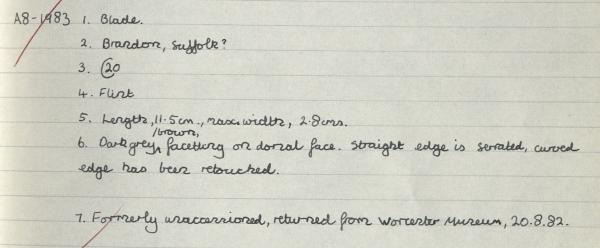 A8-1983 1. Blade.
2. Brandon, Suffolk?
3. 20
4. Flint
5. Length, 11.5cm., max. width, 2.8cms.
6. Dark grey/brown, facetting on dorsal face. Straight edge is serrated, curved
edge has been retouched.
7. Formerly unaccessioned, returned from Worcester Museum, 20.8.82.